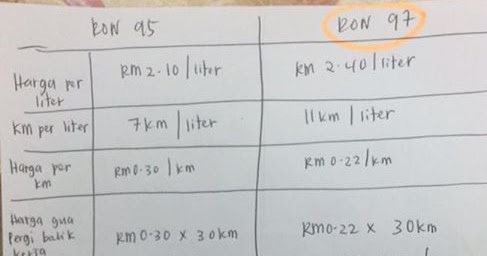 RON 95 RON 97
Harga per liter RM 2.10 / liter RM 2.40 / liter
KM per liter 7km / liter 11km / liter
Harga per km RM0.30 / km RM 0.22 / km
Harga gua pergi balik kerja RM0.30 x 30km RM0.22 x 30km